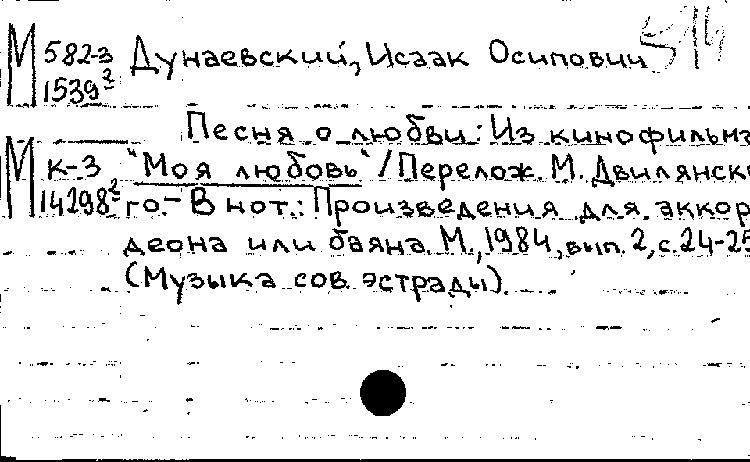 М 582-3 Дунаевский, Исаак Осипович 514
1539²
Песня о любви: Из кинофильма
М к-3 "Моя любовь" / Перелож. М. Двилянско
14298² го. – В нот.: Произведения для аккор
деона или баяна. М., 1984, вып. 2, с. 24-25
(Музыка сов. эстрады).